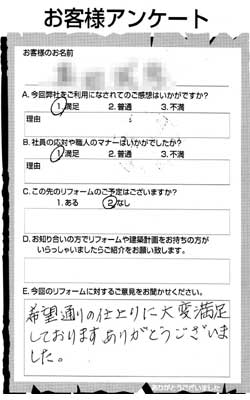 お客様アンケート
お客様のお名前
A. 今回弊社をご利用になされてのご感想はいかがですか?
1. 満足 2. 普通 3. 不満
理由
B. 社員の応対や職人のマナーはいかがでしたか?
1. 満足 2. 普通 3. 不満
理由
C. この先のリフォームのご予定はございますか?
1. ある 2. なし
D. お知り合いの方でリフォームや建築計画をお持ちの方が
いらっしゃいましたらご紹介をお願い致します。
E. 今回のリフォームに対するご意見をお聞かせください。
希望通りの仕上りに大変満足
しておりますありがとうございま
した。
ありがとうございました